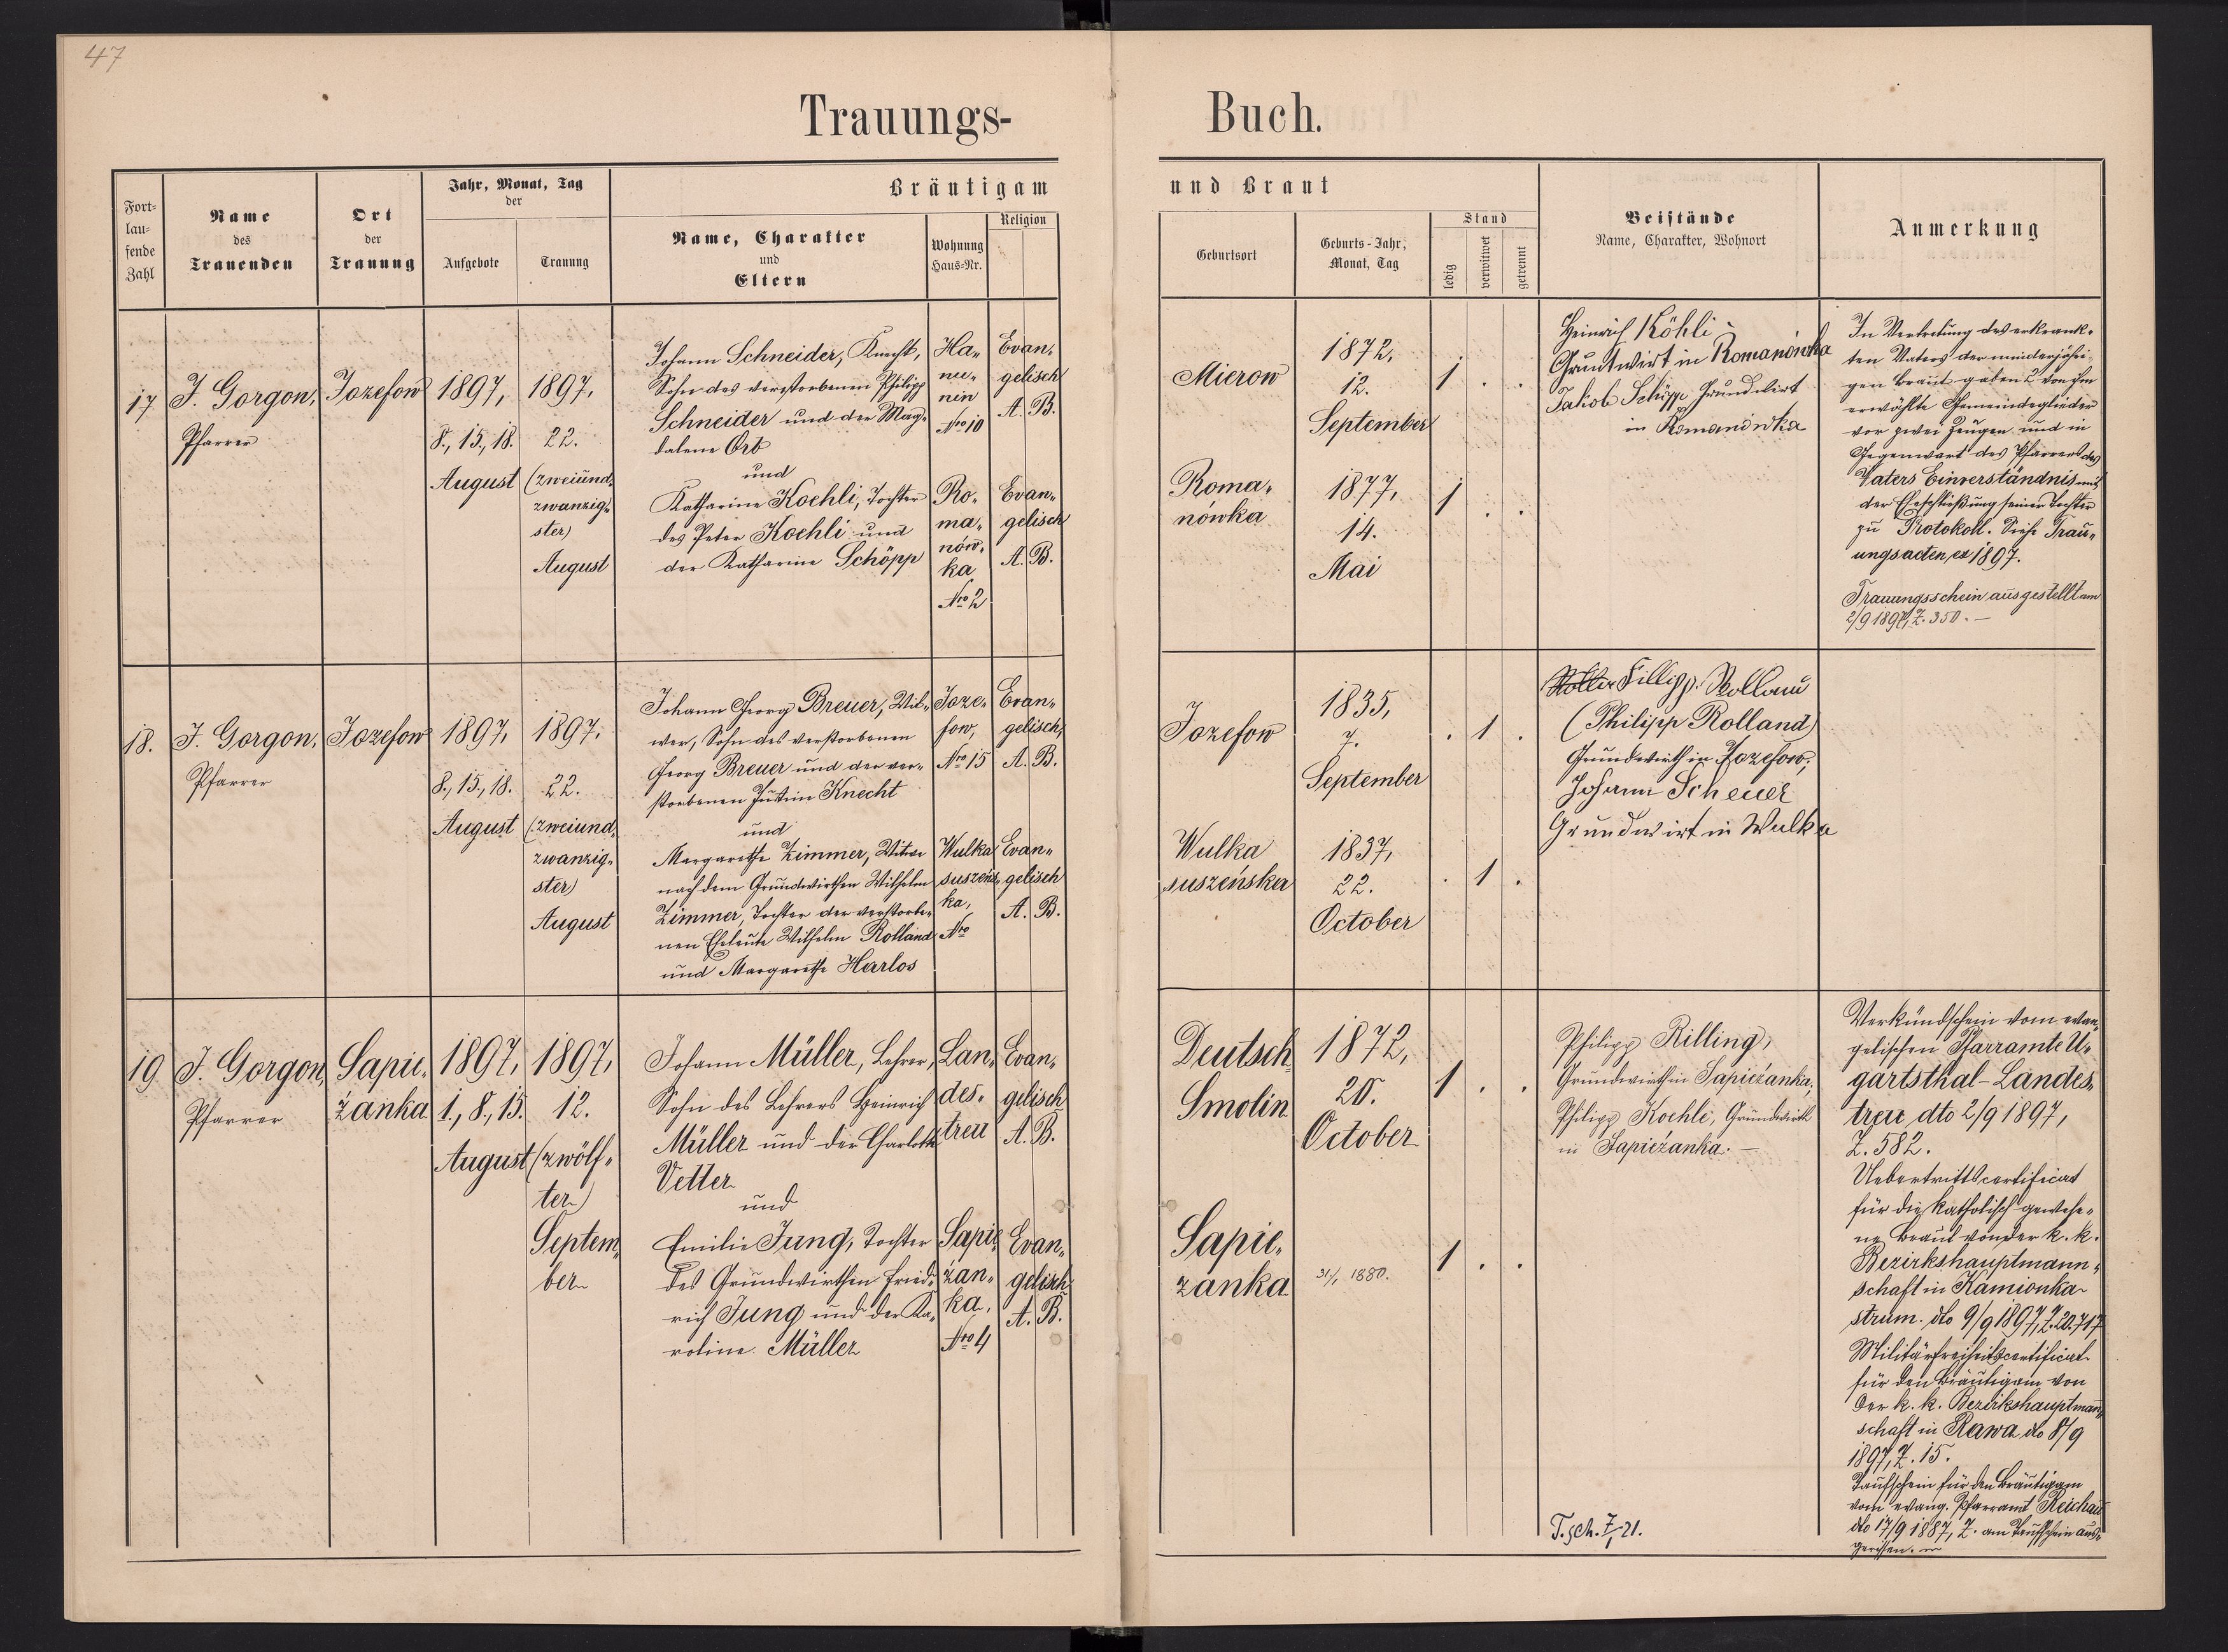 47
Trauungs-
Buch.
Fort-
lau-
fende
Zahl
Name
des
Trauenden
Ort
der
Trauung
Jahr, Monat, Tag
der
Aufgebote
Trauung
Bräutigam
Name, Charakter
und
Eltern
Wohnung
Haus-Nr.
Religion
und Braut
Geburtsort
Geburts-Jahr,
Monat, Tag
Stand
ledig
verwitwet
getrennt
Beistände
Name, Charakter, Wohnort
Anmerkung
17
J. Gorgon,
Pfarrer
Jozefow
1897,
8., 15., 18.
August
1897,
22.
(zweiund-
zwanzig-
ster)
August
Johann Schneider, Knecht,
Sohn des verstorbenen Philipp
Schneider und der Mag-
dalena Orb
und
Katharina Koehli, Tochter
des Peter Koehli und
der Katharina Schöpp
Ha-
nu-
nin
Nro 10
Ro-
ma-
nów-
ka
Nro 2
Evan-
gelisch
A. B.
Evan-
gelisch
A. B.
Mierow
1872,
12.
September
1 . .
Roma-
nówka
1877,
14.
Mai
1 . .
Heinrich Köhli
Grundwirt in Romanówka
Jakob Schöpp Grundwirt
in Romanówka
In Vertretung des erkrank-
ten Vaters der minderjähri-
gen Braut gaben 2 von ihm
erwählte Gemeindeglieder
vor zwei Zeugen und in
Gegenwart des Pfarrers des
Vaters Einverständnis mit
der Eheschließung seiner Tochter
zu Protokoll. Siehe Trau-
ungsacten ex 1897.
Trauungsschein ausgestellt am
2/9 1897, Z. 350. —
18.
J. Gorgon,
Pfarrer
Jozefow
1897,
8., 15., 18.
August
1897,
22.
(zweiund-
zwanzig-
ster)
August
Johann Georg Breuer, Wit-
wer, Sohn des verstorbenen
Georg Breuer und der ver-
storbenen Justin Knecht
und
Margarethe Zimmer, Witwe
nach dem Grundwirthen Wilhelm
Zimmer, Tochter der verstorbe-
nen Eheleute Wilhelm Rolland
und Margarethe Harlos
Joze-
fow,
Nro 15
Wulka
suszeńs-
ka,
Nro
Evan-
gelisch,
A. B.
Evan-
gelisch
A. B.
Jozefow
1835,
7.
September
. 1 .
Wulka
suszeńska
1837,
22.
October
. 1 .
Fillipp Rolland
(Philipp Rolland)
Grundwirth in Jozefow,
Johann Scheuer
Grundwirt in Wulka
19
J. Gorgon,
Pfarrer
Sapie-
żanka
1897,
1., 8., 15.
August
1897,
12.
(zwölf-
ter)
Septem-
ber
Johann Müller, Lehrer,
Sohn des Lehrers Heinrich
Müller und der Charlotte
Vetter
und
Emilie Jung, Tochter
des Grundwirthen Fried-
rich Jung und der Ka-
roline Müller
Lan-
des-
treu
Sapie-
żan-
ka,
Nro 4
Evan-
gelisch
A. B.
Evan-
gelisch
A. B.
Deutsch
Smolin
1872,
20.
October
1 . .
Sapie-
zanka
31/1 1880.
1 . .
Philipp Rilling,
Grundwirth in Sapieżanka,
Philipp Koehle, Grundwirth
in Sapieżanka. —
T.sch. 7/21.
Verkündschein vom evan-
gelischen Pfarramte U-
gartsthal-Landes-
treu dto 2/9 1897,
Z. 582.
Uebertrittscertificat
für die katholisch gewese-
ne Braut von der k. k.
Bezirkshauptmann-
schaft in Kamionka
strum. dto 9/9 1897, Z. 20.717
Militärfreiheitscertificat
für den Bräutigam von
der k. k. Bezirkshauptmann-
schaft in Rawa dto 8/9
1897, Z. 15.
Taufschein für den Bräutigam
vom evang. Pfarramt Reichau
dto 17/9 1887, Z. am Taufschein aus-
gerissen.